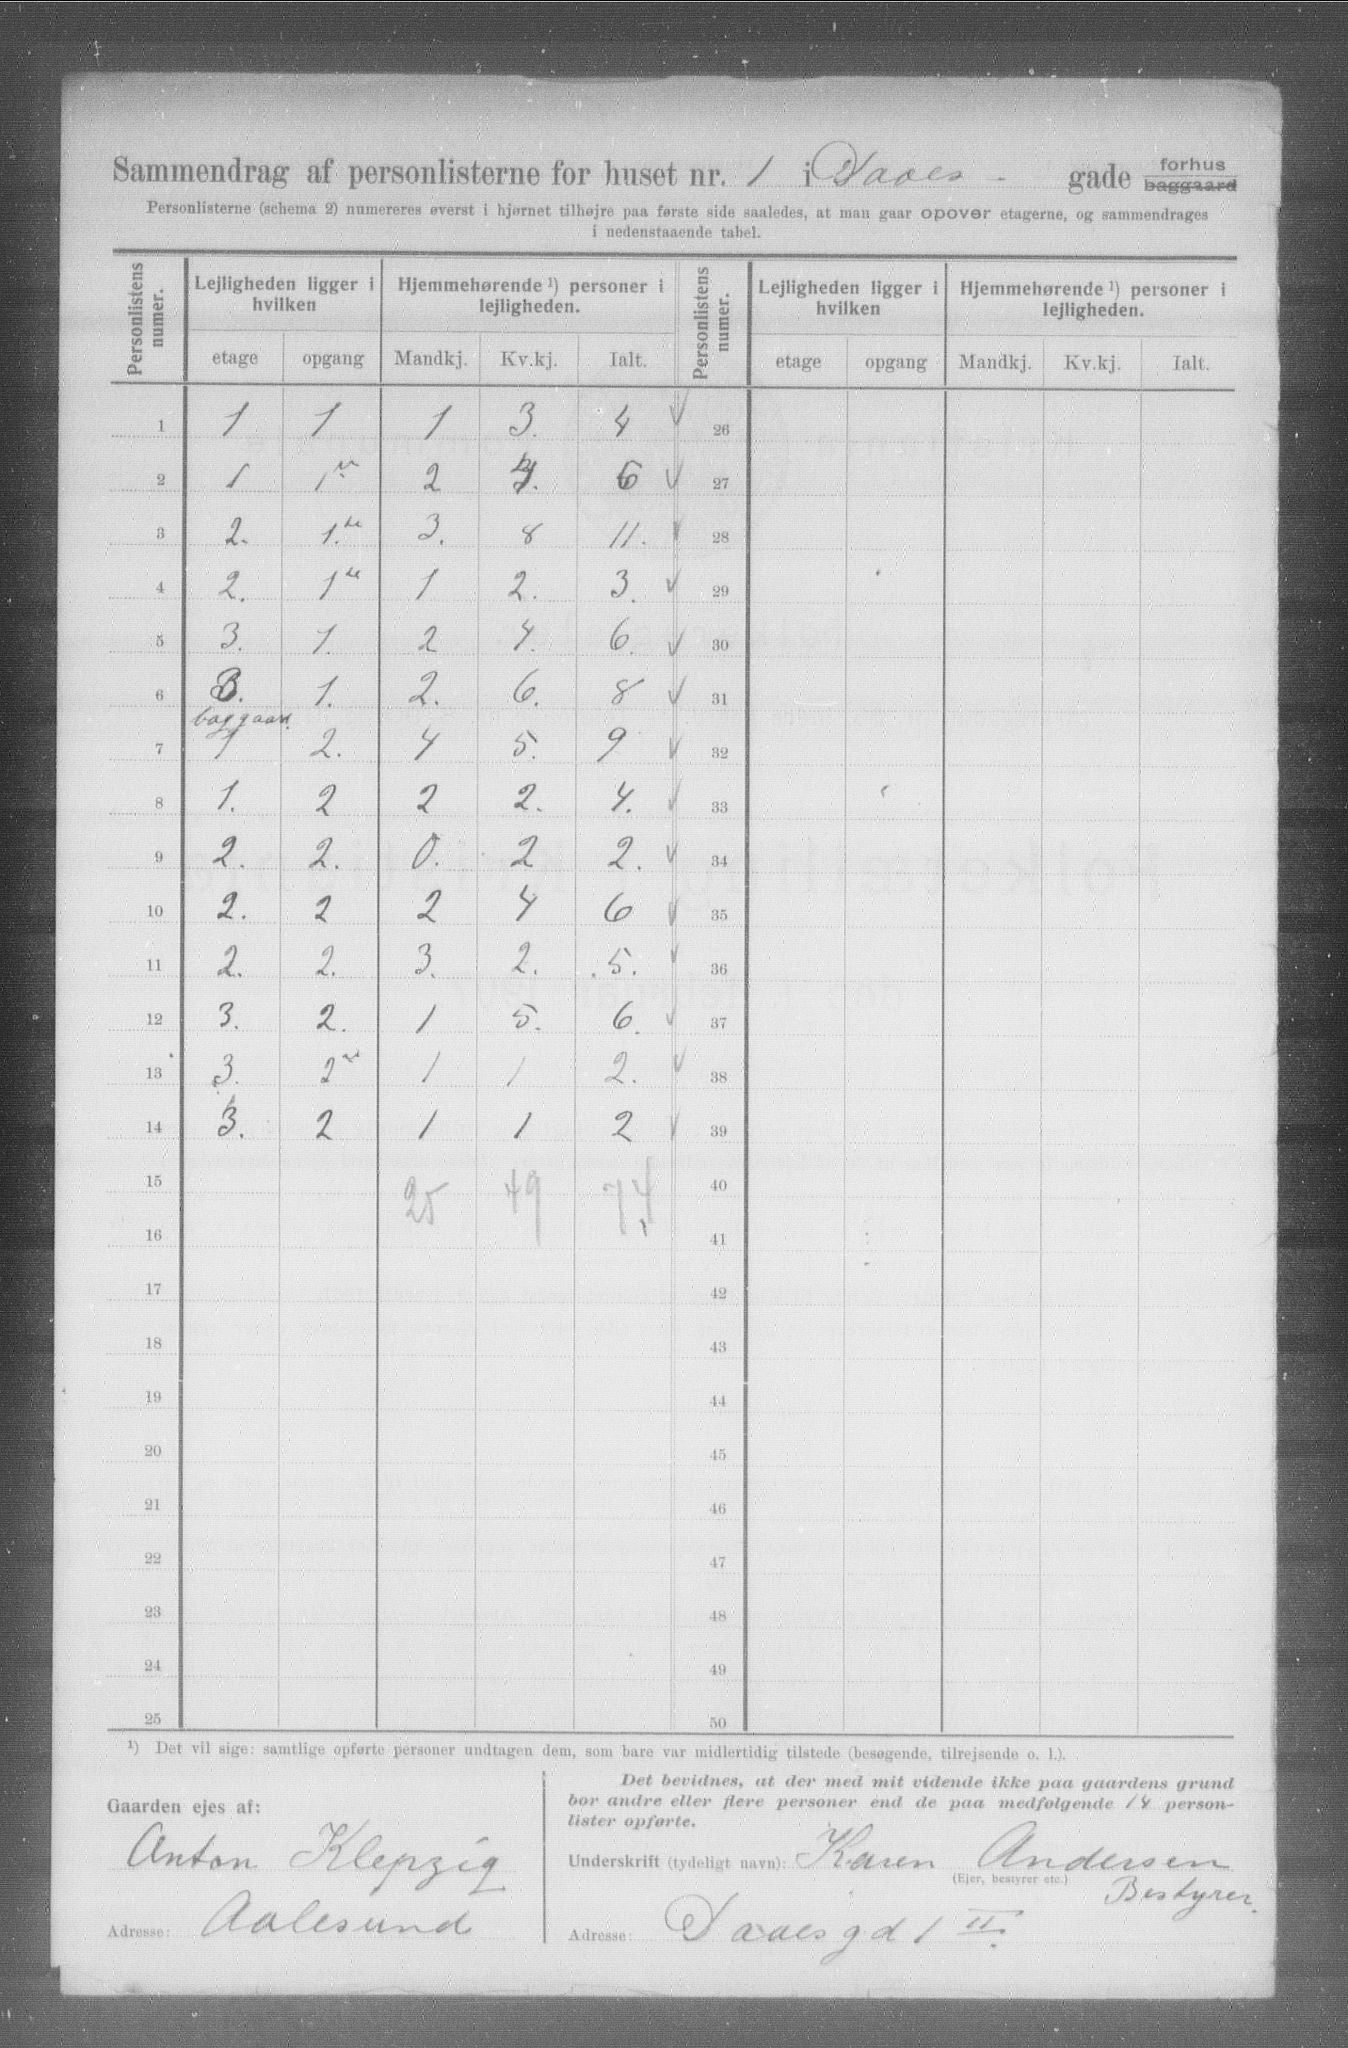 Sammendrag af personlisterne for huset nr. 1 i Daaes - gade forhus baggaard
Personlisterne (schema 2) numereres øverst i hjørnet tilhøjre paa første side saaledes, at man gaar opover etagerne, og sammendrages
i nedenstaaende tabel.
Personlistens numer. Lejligheden ligger i hvilken Hjemmehørende ¹) personer i lejligheden. Personlistens numer. Lejligheden ligger i hvilken Hjemmehørende ¹) personer i lejligheden.
etage opgang Mandkj. Kv.kj. Ialt. etage opgang Mandkj. Kv.kj. Ialt.
1 1 1 1 3. 4 26
2 1 1 2 4. 6 27
3 2. 1. 3. 8 11. 28
4 2. 1 1 2. 3. 29
5 3. 1. 2 4. 6. 30
6 3. 1. 2. 6. 8 31
baggaard.
7 1 2. 4 5. 9 32
8 1. 2 2 2. 4. 33
9 2. 2. 0. 2 2. 34
10 2. 2 2 4 6 35
11 2. 2. 3. 2. 5. 36
12 3. 2. 1 5. 6. 37
13 3. 2 1 1 2. 38
14 3. 2 1 1 2 39
15 25 49 74 40
16 41
17 42
18 43
19 44
20 45
21 46
22 47
23 48
24 49
25 50
¹) Det vil sige: samtlige opførte personer undtagen dem, som bare var midlertidig tilstede (besøgende, tilrejsende o. l.).
Gaarden ejes af:
Anton Klepzig
Adresse: Aalesund
Det bevidnes, at der med mit vidende ikke paa gaardens grund
bor andre eller flere personer end de paa medfølgende 14 person-
lister opførte.
Underskrift (tydeligt navn): Karen Andersen
(Ejer, bestyrer etc.) Bestyrer.
Adresse: Daaesgd 1 II.